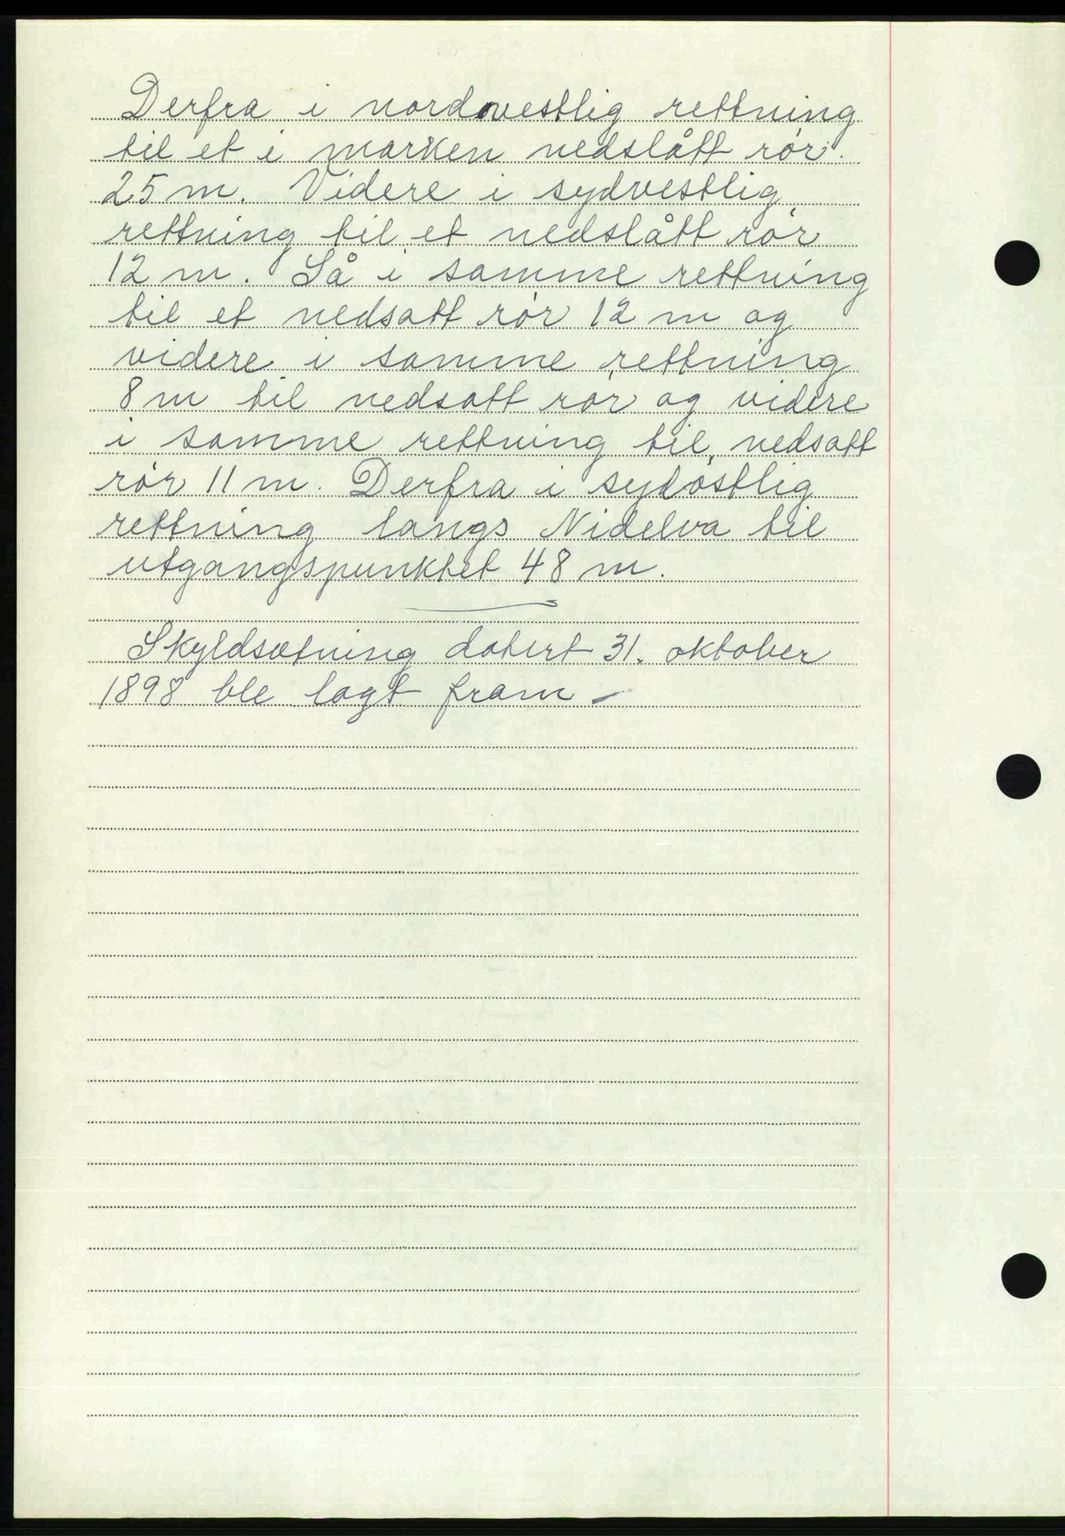 Derfra i nordvestlig rettning
til et i marken nedslått rör.
25 m. Videre i sydvestlig
rettning til et nedslått rör
12 m. Så i samme rettning
til et nedsatt rör 12 m og
videre i samme rettning
8 m til nedsatt rör og videre
i samme rettning til nedsatt
rör 11 m. Derfra i sydöstlig
rettning langs Nidelva til
utgangspunktet 48 m.
Skyldsætning datert 31. oktober
1898 ble lagt fram -